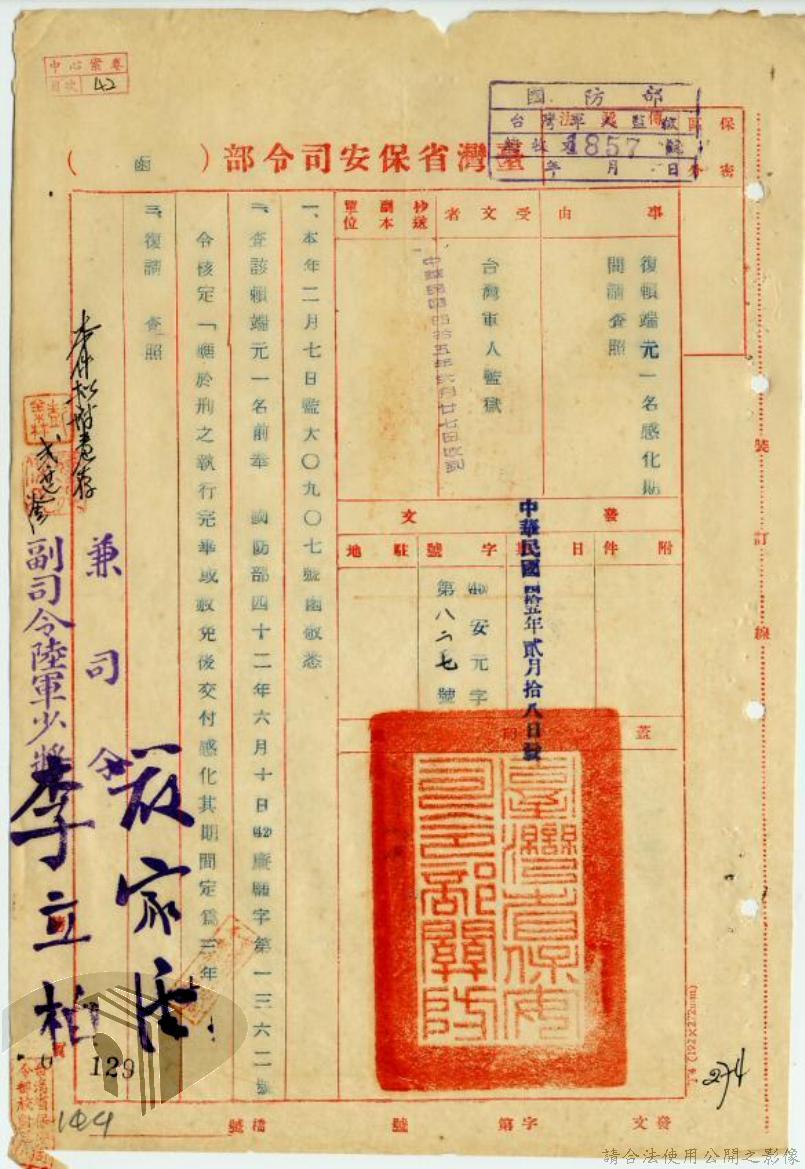 中心索卷
目次 42
國防部
台灣軍人監獄
1857
年 月 日
保密區分
臺灣省保安司令部（函）
事由
復賴端元一名感化期
間請查照
受文者
台灣軍人監獄
抄送副本單位
中華民國四拾五年貳月廿七日收到
發文
附件
日期
字號
駐地
中華民國四拾五年貳月拾八日發
安元字
第八二七號
蓋印
臺灣省保安司令部關防
一、本年二月七日監大〇九〇七號函敬悉
二、查該賴端元一名前奉 國防部四十二年六月十日(42)廉願字第一三六二號
令核定「應於刑之執行完畢或赦免後交付感化其期間定為三年」
三、復請 查照
兼司令
副司令陸軍少將
李立柏
129
144
274
裝訂線
檔號
發文字第 號
(192×272m.m)
請合法使用公開之影像